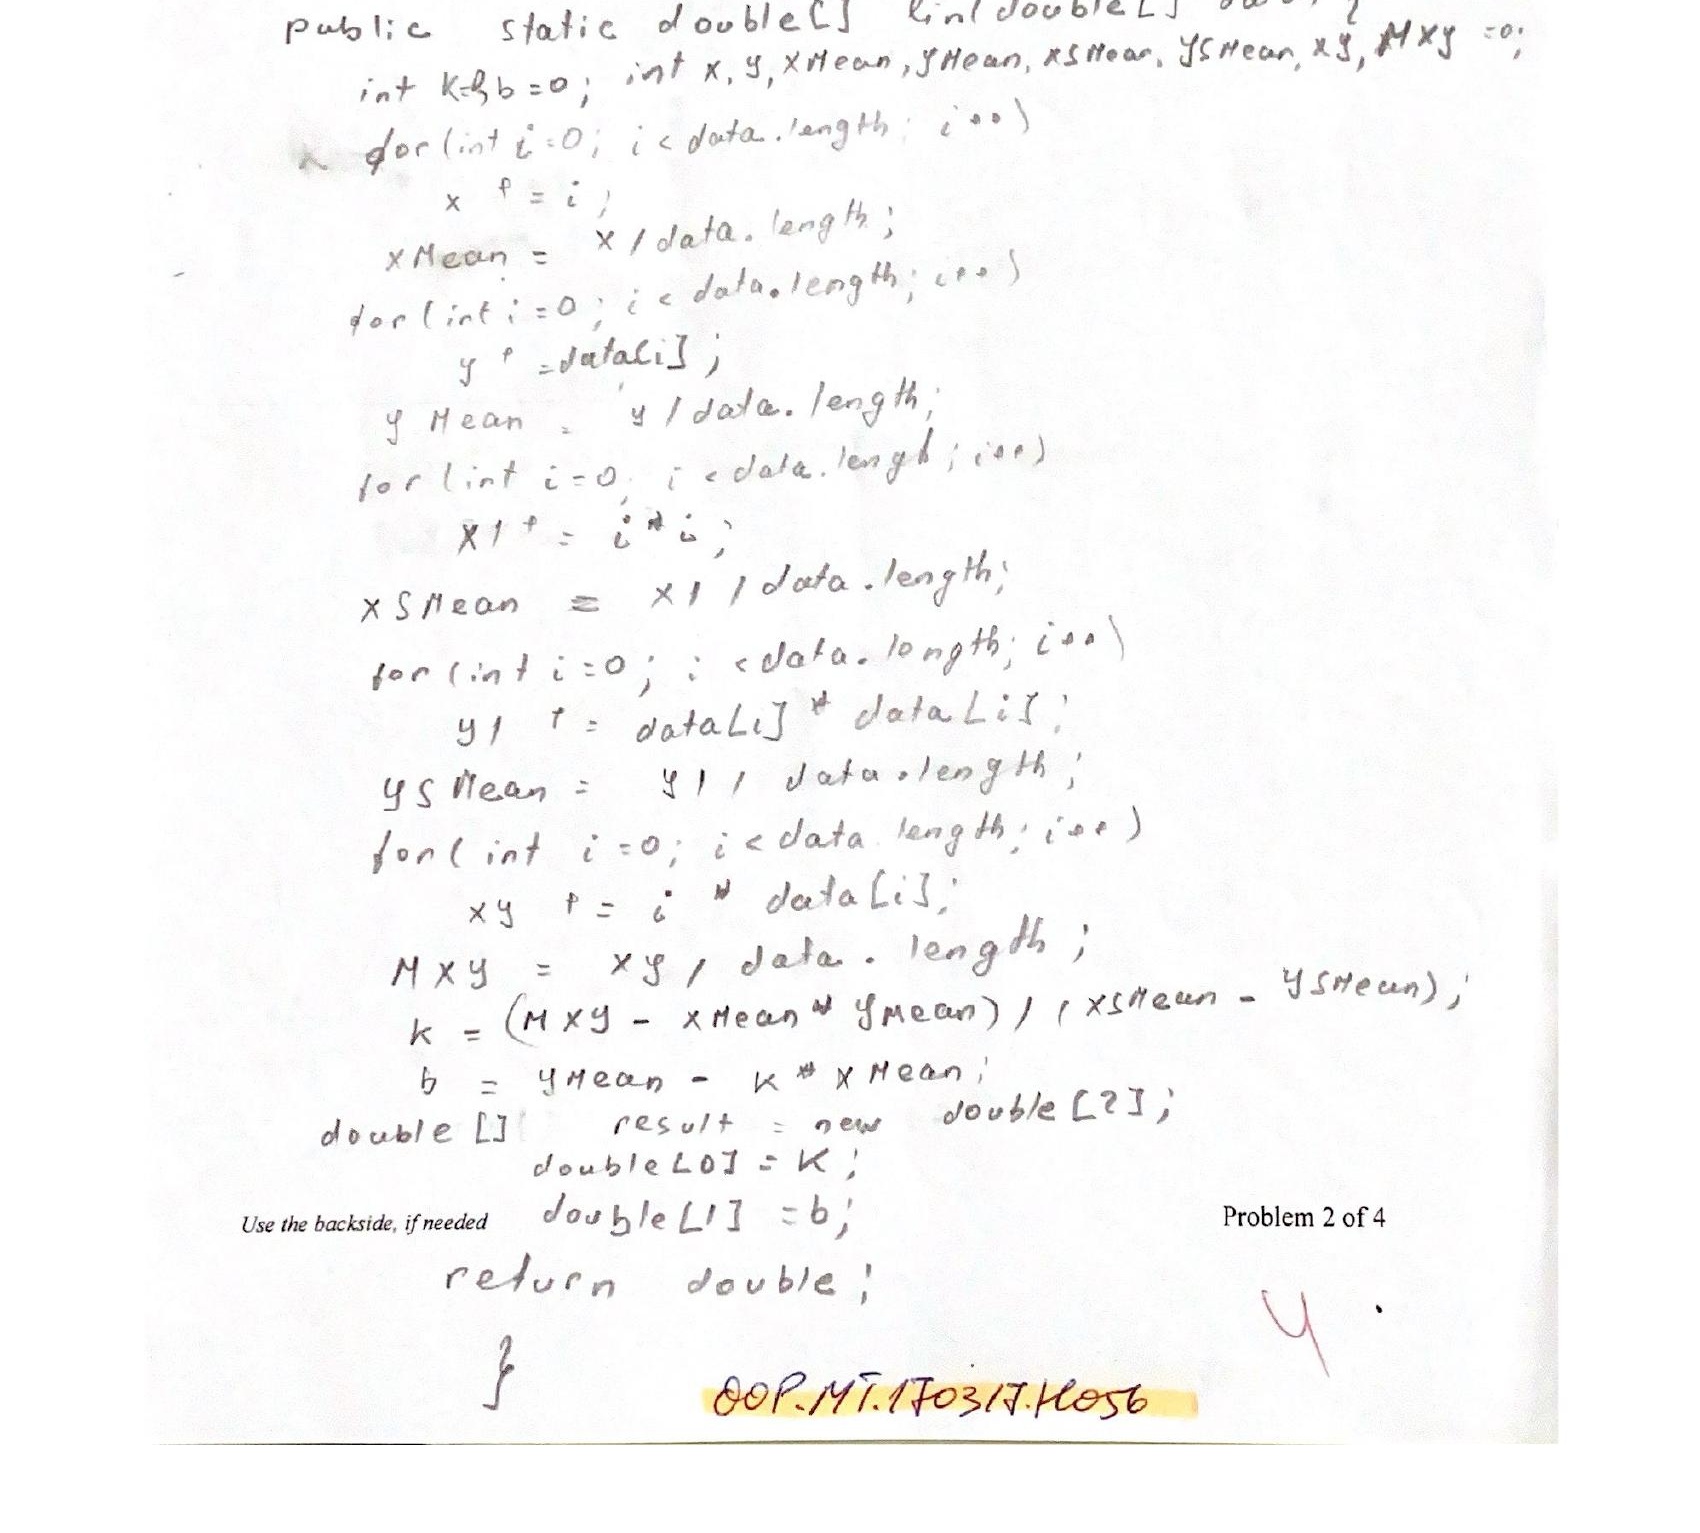 public static double[] lin(double[]
int k=0, b=0; int x, y, xMean, yMean, xSMean, ySMean, xy, Mxy =0;
for(int i=0; i<data.length; i++)
x += i;
xMean = x / data.length;
for(int i=0; i<data.length; i++)
y += data[i];
yMean = y / data.length;
for(int i=0; i<data.lengh; i++)
x1 += i*i;
xSMean = x1 / data.length;
for(int i=0; i<data.length; i++)
y1 += data[i] * data[i];
ySMean = y1 / data.length;
for(int i=0; i<data.length; i++)
xy += i * data[i];
Mxy = xy / data.length;
k = (Mxy - xMean * yMean) / (xSMean - ySMean);
b = yMean - k * xMean;
double[] result = new double[2];
double[0] = k;
Use the backside, if needed double[1] = b; Problem 2 of 4
return double;
4
}
OOP.MT.170317.H056